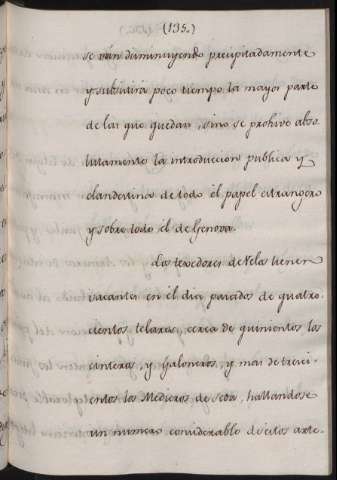 (135.)
se ván diminuyendo precipitadamente
y subsistirá poco tiempo la mayor parte
de las que quedan, sino se prohive abso
lutamente la introduccion publica y
clandestina de todo el papel estrangero
y sobre todo el de Genova.
Los texedores de Velos tienen
vacantes en el dia pasados de quatro-
cientos telares, cerca de quinientos los
cinteros, y Galoneros, y mas de treci-
entos los Medieros de seda, hallandose
un numero considerable de estos arte-